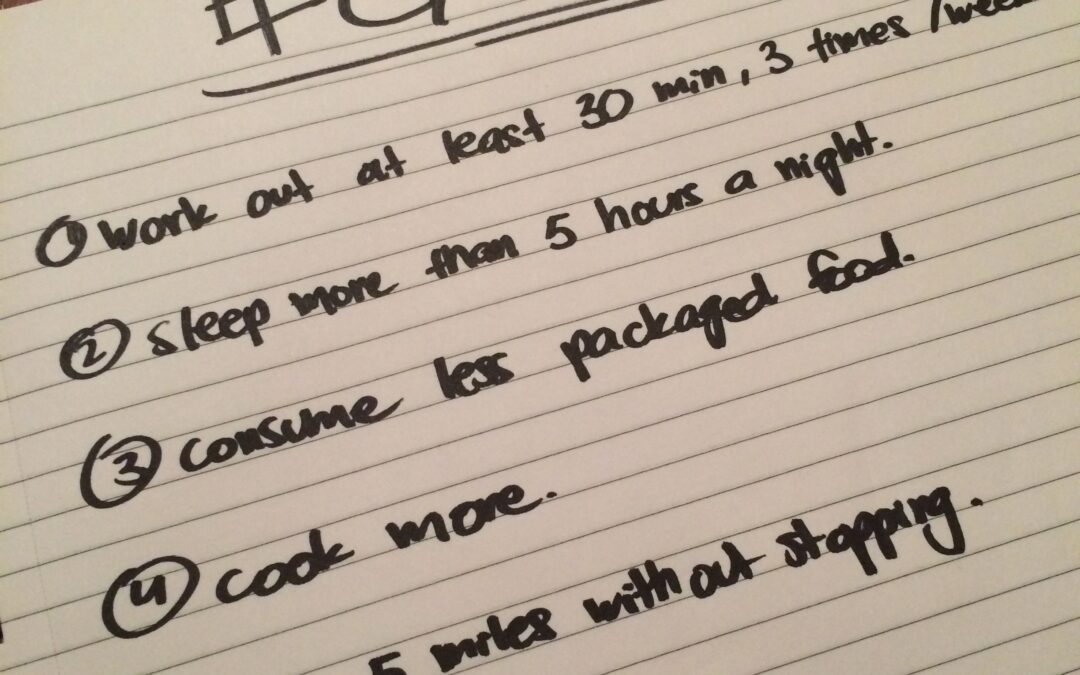 ① work out at least 30 min, 3 times /week
② sleep more than 5 hours a night.
③ consume less packaged food.
④ cook more.
5 miles without stopping.